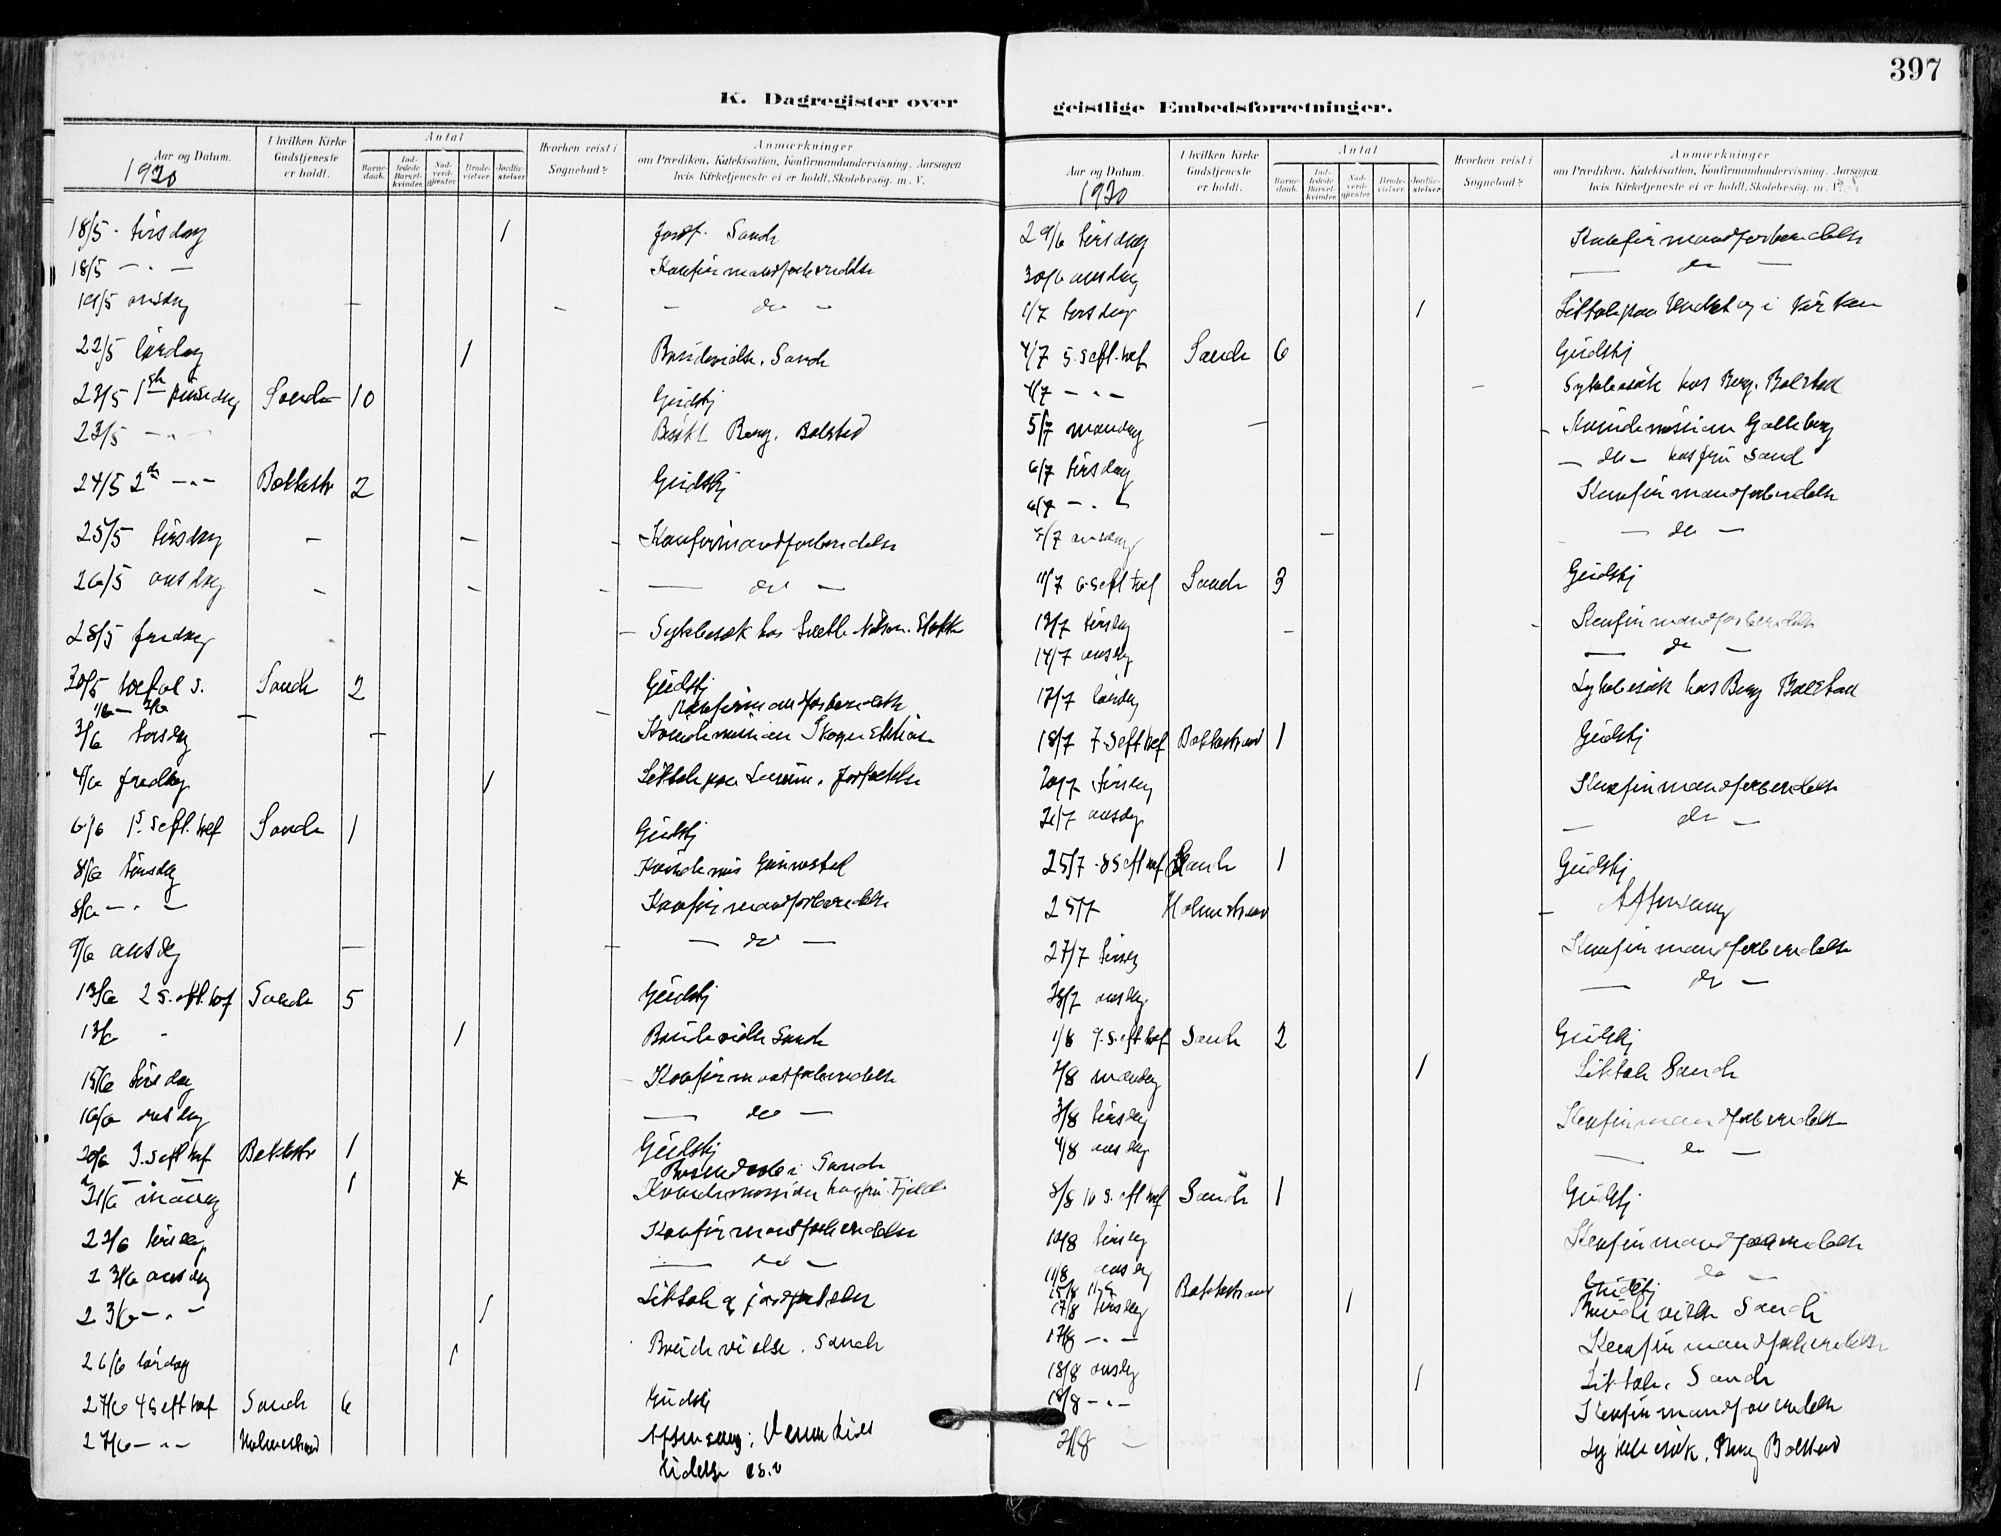 397
K. Dagregister over
geistlige Embedsforretninger.
Aar og Datum. 1920
I hvilken Kirke Gudstjeneste er holdt.
Antal
Barnedaab. Indledede Barselkvinder. Nadverdgjester. Brudevielser. Jordfæstelser.
Hvorhen reist i Sognebud?
Anmærkninger
om Prædiken, Katekisation, Konfirmandundervisning, Aarsagen
hvis Kirketjeneste ei er holdt, Skolebesøg. m. V.
18/5 - tirsdag 1 Jordf. Sande
18/5 — " — Konfirmandforberedelse
19/5 onsdag — do —
22/5 lørdag 1 Brudevielse. Sande
23/5 1ste pinsedag Sande 10 Gudstj
23/5 — " — Besökt Berg. Bolstad
24/5 2den — " — Bakkestr 2 Gudstj
25/5 tirsdag Konfirmandforberedelse
26/5 onsdag — do —
28/5 fredag Sykebesøk hos
30/5 Trefol s. Sande 2 Gudstj
1/6 — 2/6 Konfirmandforberedelse
3/6 torsdag Kvindemission Skoger Station
4/6 fredag 1 Liktale paa
6/6 1 s. eft. tref Sande 1 Gudstj
8/6 tirsdag Kvindemis Gunnestad
8/6 — " — Konfirmandforberedelse
9/6 onsdag — do —
13/6 2 s. eft. tref Sande 5 Gudstj
13/6 " 1 Brudevielse Sande
15/6 tirsdag Konfirmandforberedelse
16/6 onsdag — do —
20/6 3. s eft tref Bakkestr 1 Gudstj
Sande
21/6 mandag 1 Kvindemission hos fru Fjeld
22/6 tirsdag Konfirmandforberedelse
23/6 onsdag — do —
23/6 — " — 1 Liktale og jordfæstelse
26/6 lørdag 1 Brudevielse. Sande
27/6 4 s eft tref Sande 6 Gudstj
27/6 — " — Holmestrand Aftensang;
Aar og Datum. 1920
I hvilken Kirke Gudstjeneste er holdt.
Antal
Barnedaab. Indledede Barselkvinder. Nadverdgjester. Brudevielser. Jordfæstelser.
Hvorhen reist i Sognebud?
Anmærkninger
om Prædiken, Katekisation, Konfirmandundervisning, Aarsagen
hvis Kirketjeneste ei er holdt, Skolebesøg. m. V.
29/6 tirsdag Konfirmandforberedelse
30/6 onsdag — do —
1/7 torsdag 1 Liktale paa og i kirken
4/7 5. s eft. tref Sande 6 Gudstj
4/7 — " — Sykebesøk hos Berg. Bolstad
5/7 mandag Kvindemission Galleberg
6/7 tirsdag — do — hos fru Sand
6/7 — " — Konfirmandforberedelse
7/7 onsdag — do —
11/7 6. s eft tref Sande 3 Gudstj
13/7 tirsdag Konfirmandforberedelse
14/7 onsdag — do —
17/7 lørdag Sykebesøk hos Berg Bolstad
18/7 7. s eft tref Bakkestrand 1 Gudstj
20/7 tirsdag Konfirmandforberedelse
21/7 onsdag — do —
25/7 8 s eft tref Sande 1 Gudstj
25/7 Holmestrand Aftensang
27/7 tirsdag Konfirmandforberedelse
28/7 onsdag — do —
1/8 9. s. eft tref Sande 2 Gudstj
2/8 mandag 1 Liktale Sande
3/8 tirsdag Konfirmandforberedelse
4/8 onsdag — do —
8/8 10 s. eft tref Sande 1 Gudstj
10/8 tirsdag Konfirmandforberedelse
11/8 onsdag — do —
15/8 11 s. Bakkestrand Gudstj
17/8 tirsdag 1 Brudevielse Sande
17/8 — " — Konfirmandforberedelse
18/8 onsdag 1 Liktale. Sande
18/8 — " — Konfirmandforberedelse
21/8 — Sykebesøk. Berg Bolstad